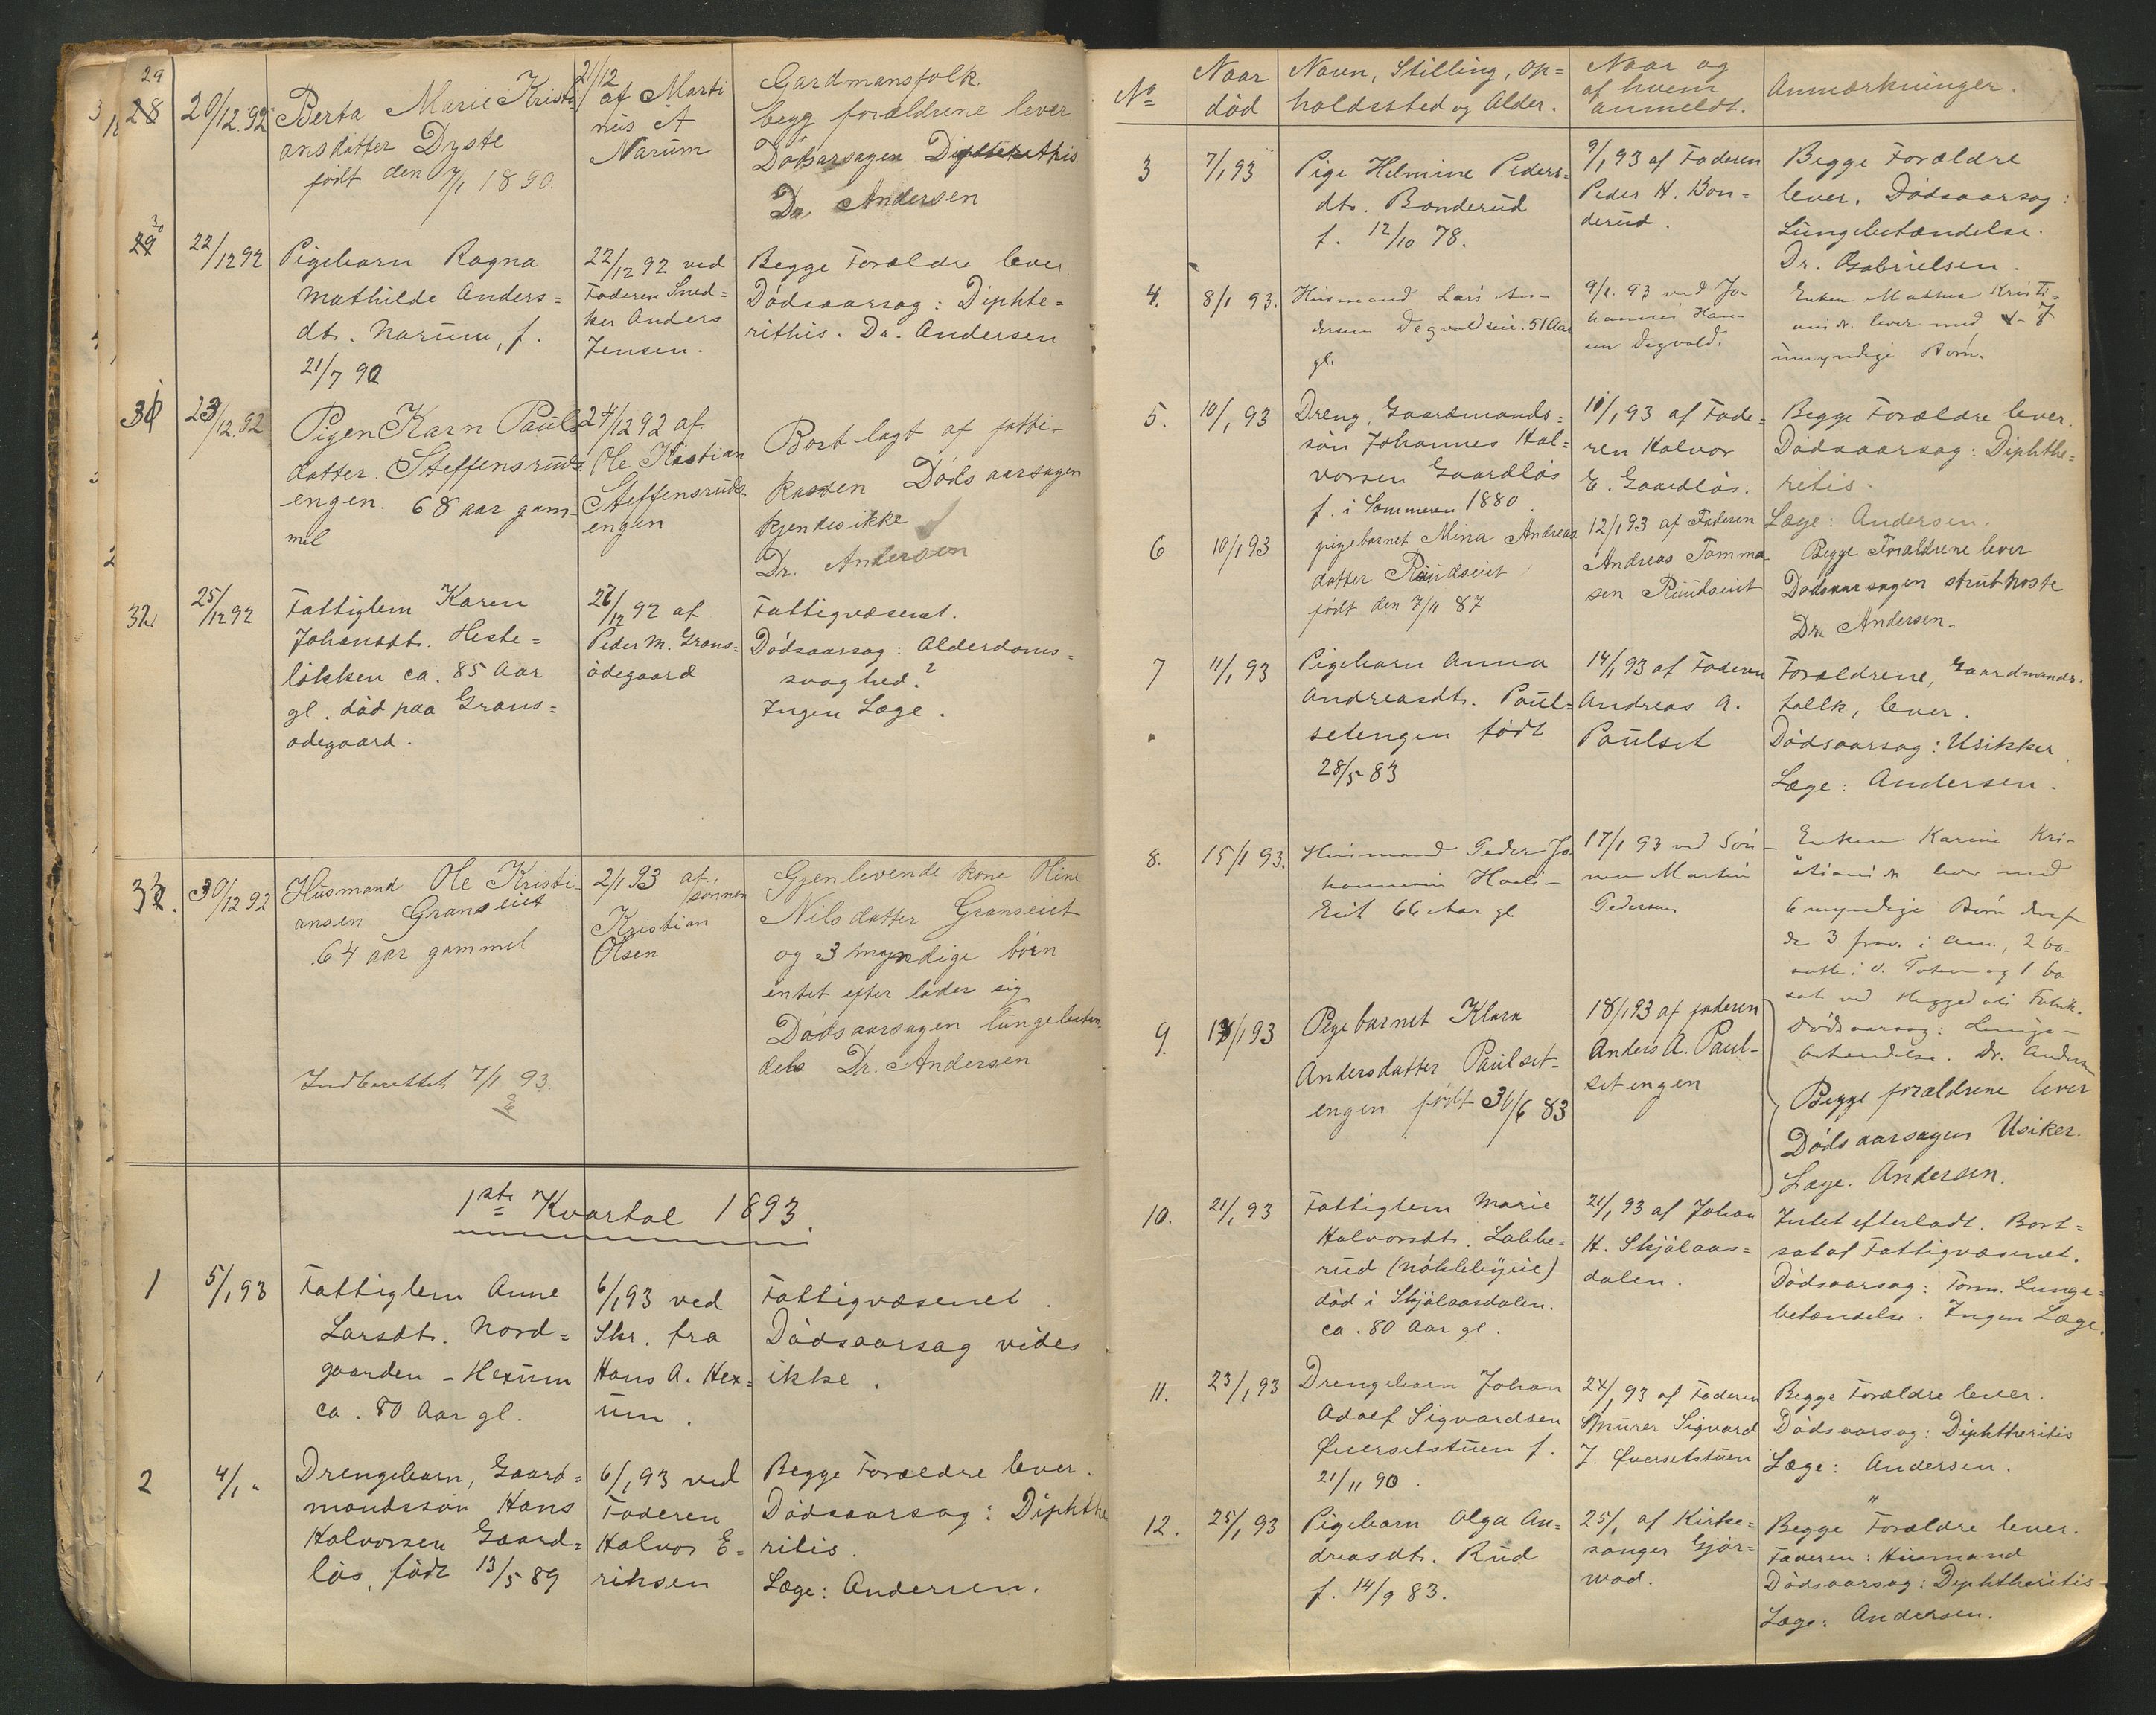 29
28
20/12.92
Berta Marie Kristi
ansdatter Dyste
født den 7/1 1890.
21/12
af Marti
nus A
Narum
Gardmansfolk.
begg forældrene lever
Dødsarsagen Diphterithis
Dr. Andersen
30
29
22/12 92
Pigebarn Ragna
Mathilde Anders=
dt. Narum, f.
21/7 90
22/12 92 ved
Faderen Sned=
ker Anders
Jensen.
Begge Forældre lever
Dødsaarsag: Diphte=
rithis. Dr. Andersen
31
23/12.92
Pigen Karn Pauls
datter. Steffensruds
engen. 68 aar gam-
mel
24/12 92 af
Ole Kristian
Steffensruds-
engen
Bort lagt af fatti-
kassen Døds aarsagen
kjendes ikke
Dr. Andersen
32
25/12 92
Fattiglem Karen
Johansdt. Heste=
løkken ca. 85 Aar
gl. død paa Grans=
ødegaard.
26/12 92 af
Peder M. Grans=
ødegaard
Fattigvæsenet.
Dødsaarsag: Alderdoms=
svaghed.?
Ingen Læge.
33.
30/12 92
Husmand Ole Kristi-
ansen Granseiet
64 aar gammel
2/1 93 af
sønnen
Kristian
Olsen
Gjenlevende kone Oline
Nilsdatter Granseiet
og 3 myndige børn
entet efter lader sig
Dødsaarsagen lungebeten
dels Dr. Andersen
Indberettet 7/1 93.
E
1ste Kvartal 1893.
1
5/1 93
Fattiglem Anne
Larsdt. Nord=
gaarden - Hexum
ca. 80 Aar gl.
6/1 93 ved
Skr. fra
Hans A. Hex=
um.
Fattigvæsenet.
Dødsaarsag vides
ikke.
2
4/1 "
Drengebarn, Gaard=
mandssøn Hans
Halvorsen Gaard=
løs, født 13/5 89
6/1 93 ved
Faderen
Halvor E=
riksen
Begge Forældre lever.
Dødsaarsag: Diphthe
ritis.
Læge: Andersen.
No
Naar
død
Navn, Stilling, Op=
holdssted og Alder.
Naar og
af hvem
anmeldt.
Anmærkninger.
3
7/1 93
Pige Helmine Peders=
dt. Bønderud
f. 12/10 78.
9/1 93 af Faderen
Peder H. Bøn=
derud.
Begge Forældre
lever. Dødsaarsag:
Lungebetændelse.
Dr. Gabrielsen.
4.
8/1 93.
Husmand Lars An-
dersen Dagvoldseie. 51 Aar
gl.
9/1. 93 ved Jo-
hannes Han-
sen Dagvold.
Enken Mathea Kristi-
ansdt. lever med 7
umyndige Børn.
5.
10/1 93
Dreng, Gaardmands=
søn Johannes Hal=
vorsen Gaardløs
f. i Sommeren 1880.
10/1 93 af Fade=
ren Halvor
E. Gaardløs.
Begge Forældre lever.
Dødsaarsag: Diphthe=
ritis.
Læge: Andersen.
6
10/1 93
pigebarnet Mina Andreas
datter Ruudseiet
født den 7/11 87
12/1 93 af Faderen
Andreas Tomma
sen Ruudseiet
Begge Forældrene lever
Dødsaarsagen strubhoste
Dr. Andersen.
7
11/1 93
Pigebarn Anna
Andreasdt. Paul=
setengen født
28/5 83
14/1 93 af Faderen
Andreas A.
Paulset
Forældrene, Gaardmands=
folk, lever.
Dødsaarsag: Usikker.
Læge: Andersen.
8.
15/1 93.
Husmand Peder Jo-
hannesen
Eiet 66 Aar gl
17/1 93 ved Søn-
nen Martin
Pedersen
Enken Karine Kri-
stiansdt. lever med
6 myndige Børn deraf
de 3 frav. i Am., 2 bo-
satte i V. Toten og 1 bo
sat ved Fabrik.
Dødsaarsag: Lunge-
betændelse. Dr. Andersen
9.
18/1 93
Pegebarnet Klara
Andersdatter Paulset-
engen født 30/6 83
18/1 93 af faderen
Anders A. Paul-
setengen
Begge forældrene lever
Dødsaarsagen Usiker.
Læge. Andersen.
10.
21/1 93
Fattiglem Marie
Halvorsdt. Labbe=
rud (Nøkleb̈yeie)
død i Skjølaasdalen.
ca. 80 Aar gl.
21/1 93 af Johan
H. Skjølaas=
dalen.
Intet efterladt. Bort=
sat af Fattigvæsenet.
Dødsaarsag: Form. Lunge=
betændelse. Ingen Læge.
11.
23/1 93
Drengebarn Johan
Adolf Sigvardsen
Øversetstuen f.
21/11 90.
24/1 93 af Faderen
Murer Sigvard
J. Øversetstuen
Begge Forældre lever.
Dødsaarsag: Diphtheritis
Læge: Andersen.
12.
25/1 93
Pigebarn Olga An=
dreasdt. Rud
f. 14/9 83.
25/1 af Kirke=
sanger Gjør=
wad.
Begge Forældre lever.
Faderen: Husmand
Dødsaarsag: Diphtheritis
Læge: Andersen.